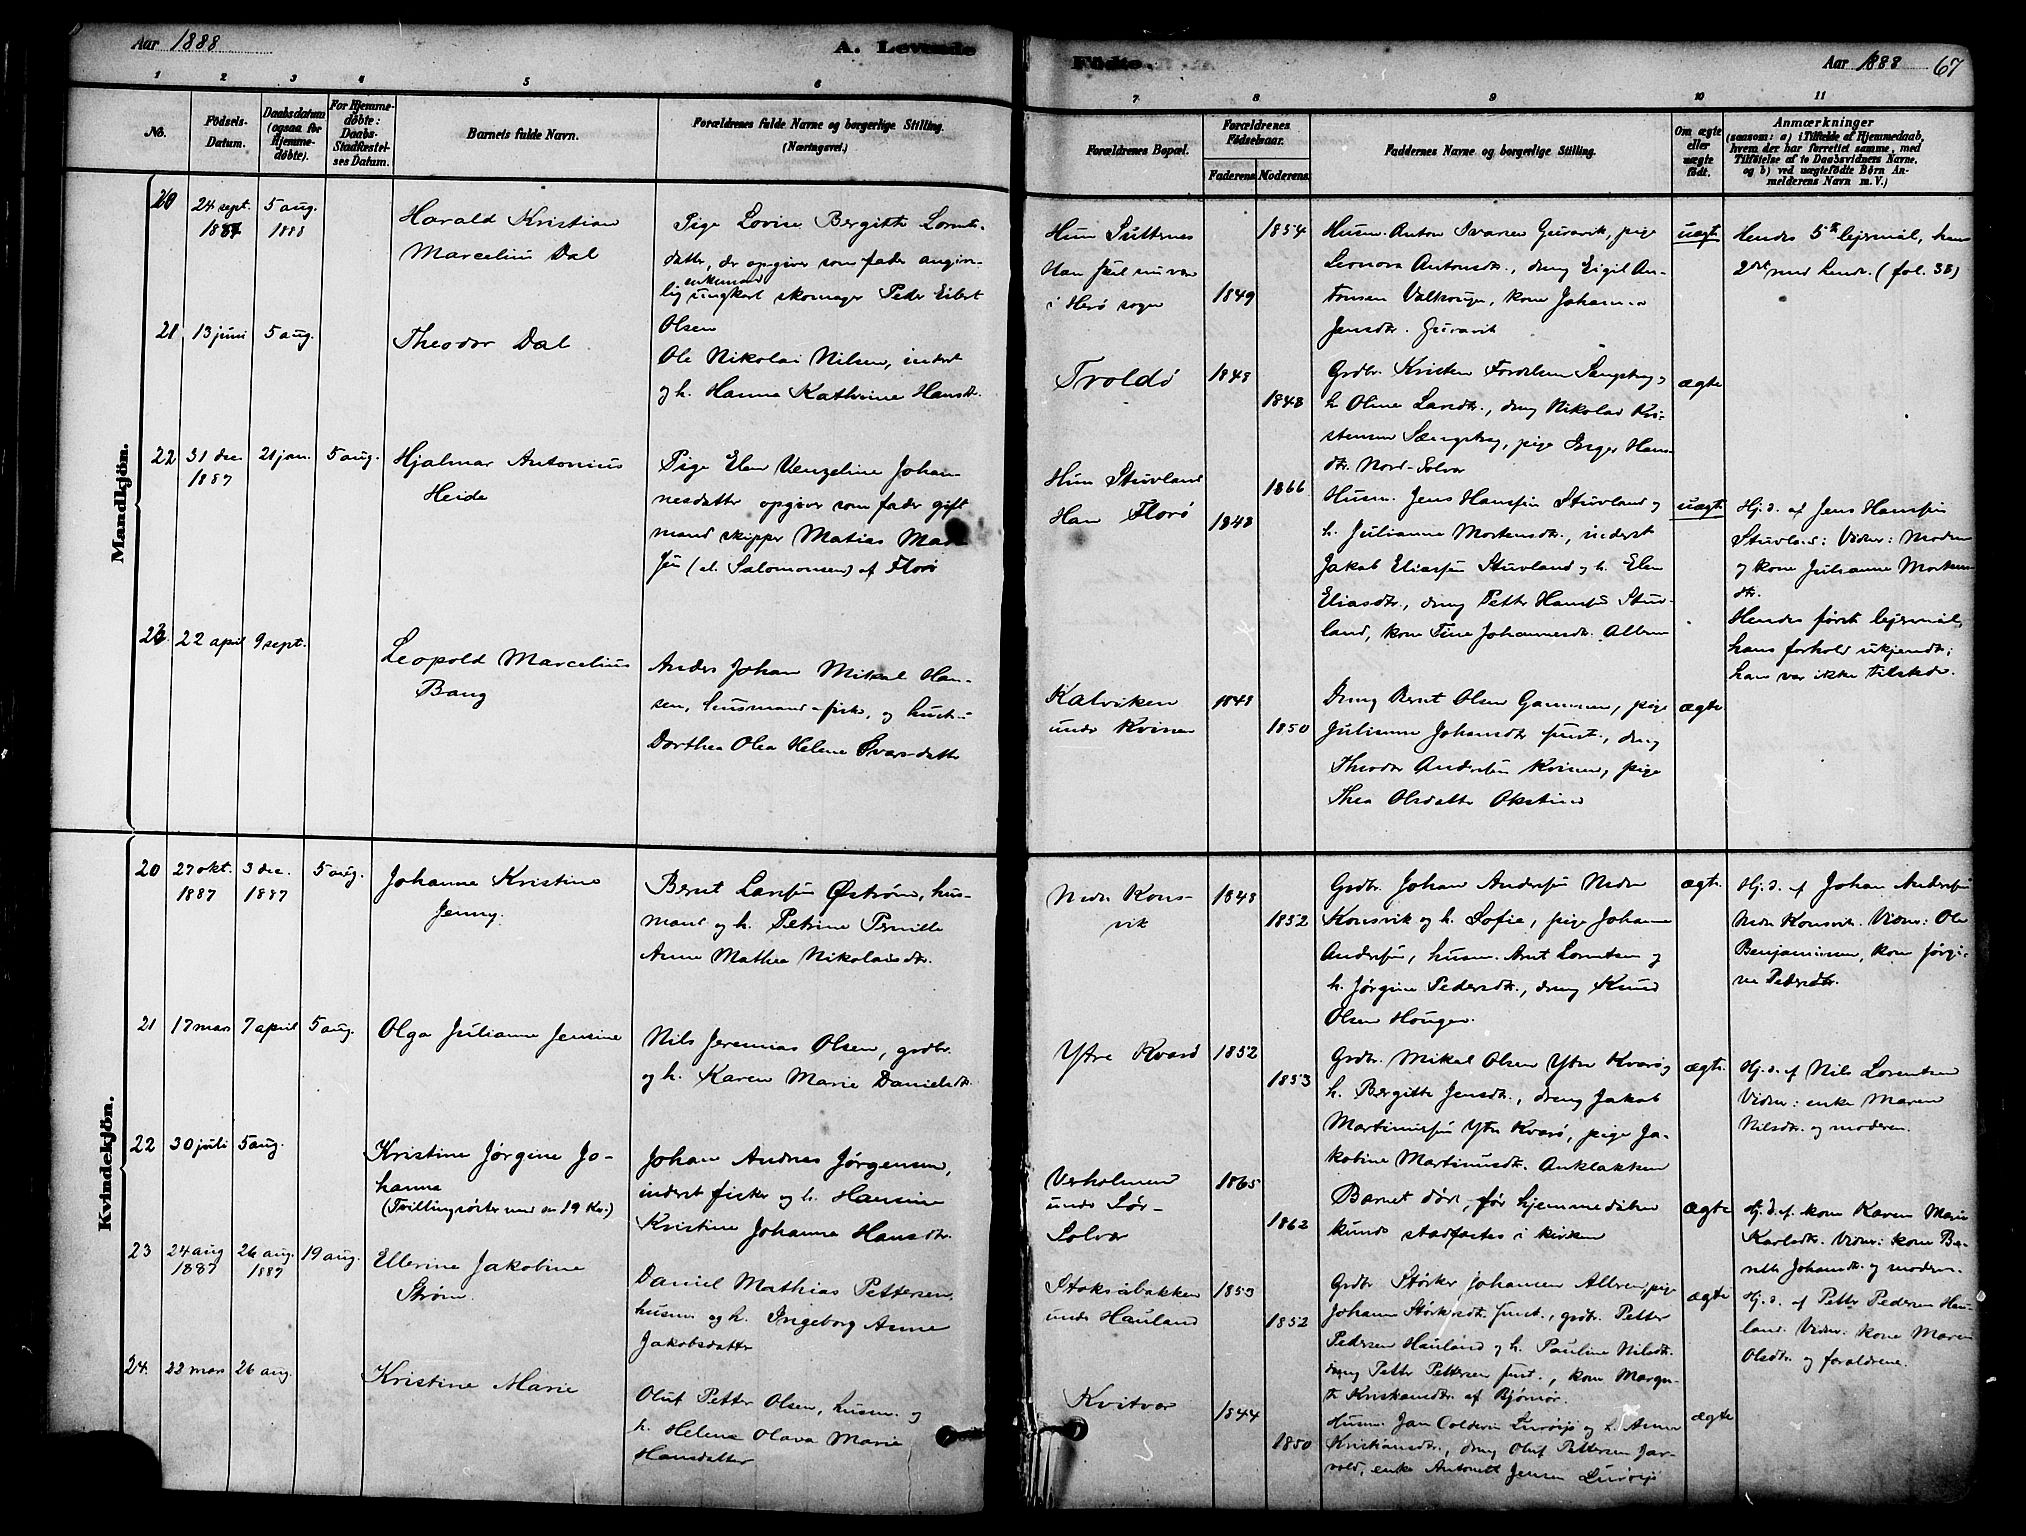 Aar 1888
A. Levende
Fødte.
Aar 1888
67
1 2 3 4 5 6
7 8 9 10 11
No.
Födsels-
Datum.
Daabsdatum
(ogsaa for
Hjemme-
döbte).
For Hjemme-
döbte:
Daabs-
Stadfæstel-
ses Datum.
Barnets fulde Navn.
Forældrenes fulde Navne og borgerlige Stilling.
(Næringsvei.)
Forældrenes Bopæl.
Forældrenes
Födselsaar.
Faderens
Moderens
Faddernes Navne og borgerlige Stilling.
Om ægte
eller
uægte
födt.
Anmærkninger
(saasom: a) i Tilfælde af Hjemmedaab,
hvem der har forrettet samme, med
Tilföielse af to Daabsvidners Navne,
og b) ved uægtefödte Börn An-
melderens Navn m. V.)
Mandkjön.
20
24 sept.
1887
5 aug.
1888
Harald Kristian
Marcelius Dal
Pige Lovise Bergitte Lornts-
datter, der opgiver som fader angiv-
enkemand
lig ungkarl skomager Peder Eibert
Olsen
Hun Sutternes
Han skal nu være
i Herø sogn
1849
1854
Husm. Anton Ivarsen Guravik, pige
Leonora Antonsdtr., dreng Eigil An-
tonsen Valkougn, kone Johanna
Jensdtr. Guravik
uægte
Hendes 5te lejermål, hans
2det med hende. (fol. 38)
21
13 juni
5 aug.
Theodor Dal
Ole Nikolai Nilsen, inderst
og h. Hanna Kathrine Hansdtr.
Troldö
1848
1848
Grdbr. Kristen
h. Oline Larsdtr., dreng Nikolai Kri-
stensen pige Inger Hans-
dtr. Nord-Solvær
ægte
22
31 dec
1887
21 jan.
5 aug.
Hjalmar Antonius
Heide
Pige Elen Venzeline Johan-
nesdatter opgiver som fader gift
mand skipper Matias
(el. Salomonsen) af Florö
Hun Stuvland
Han Florö
1848
1866
Husm. Jens Hansen Stuvland og
h. Julianna Mortensdtr., inderst
Jakob Eliassen Stuvland og h. Elen
Eliasdtr., dreng Petter Hansen Stuv-
land, kone Tine Johannesdtr. Alteren
uægte
Hj. d. af Jens Hansen
Stuvland; Vidner: Moderen
og kone Julianne Mortens-
dtr.
Hendes först lejermål,
hans forhold ukjendt;
han var ikke tilstede.
23
22 april
9 sept.
Leopold Marcelius
Bang
Anders Johan Mikal Han-
sen, husmand-fisker, og hustru
Dorthea Olea Helene Ivarsdatter
Kalviken
under Kvinen
1848
1850
Dreng Bernt Olsen Gammen, pige
Julianna Johansdtr. smst., dreng
Theodor Andersen Kvinen, pige
Thea Olsdatter Okstind
ægte
Kvindekjön.
20
27 okt.
1887
3 dec.
1887
5 aug.
Johanna Kristine
Jenny.
Bernt Larssen Östrøm, hus-
mand og h. Petrine Pernille
Anna Mathea Nikolaisdtr.
Nedre Kons-
vik
1848
1852
Grdbr. Johan Andersen Nedre
Konsvik og h. Sofie, pige Johanna
Andersen, husm. Arnt Lorntsen og
h. Jørgine Pedersdtr., dreng Knud
Olsen Hougen.
ægte
Hj. d. af Johan Andersen
Nedre Konsvik. Vidner: Ole
Benjaminsen, kone Jørgi-
ne Pedersdtr.
21
17 mars
7 april
5 aug.
Olga Julianna Jensine
Nils Jeremias Olsen, grdbr.
og h. Karen Marie Danielsdtr.
Ytre Kvarö
1852
1853
Grdbr. Mikal Olsen Ytre Kvarö og
h. Bergitte Jensdtr., dreng Jakob
Martinussen Ytre Kvarö, pige Ja-
kobine Martinusdtr. Anklakken
ægte
Hj. d. af Nils Lorentsen
Vidner: enke Maren
Nilsdtr. og moderen.
22
30 juli
5 aug.
Kristine Jørgine Jo-
hanna
(Tvillingsöster med no 19 Kv.)
Johan Andreas Jørgensen,
inderst fisker og h. Hansine
Kristine Johanna Hansdtr.
Verholmen
under Sør-
Solvær
1865
1862
Barnet døde, før hjemmedåben
kunde stadfæstes i kirken
ægte
Hj. d. af kone Karen Marie
Karlsdtr. Vidner: kone Be-
rit Johansdtr. og moderen.
23
24 aug
1887
26 aug.
1887
19 aug.
Ellerine Jakobine
Strøm.
Daniel Mathias Pettersen,
husm. og h. Ingeborg Anna
Jakobsdatter
Stoksåbakken
under Hauland
1853
1852
Grdbr. Størker Johansen Alteren, pige
Johanna Størkersdtr. smst., grdbr. Petter
Pedersen Hauland og h. Pauline Nilsdtr.
dreng Petter Pettersen smst., kone Margre-
te Kristiansdtr. af Bjørnör.
ægte
Hj. d. af Petter Pedersen Hau-
land. Vidner: kone Maren
Olsdtr. og forældrene.
24.
22 mars
26 aug.
Kristine Marie
Oluf Petter Olsen, husm. og
h. Helena Olava Marie
Hansdatter
Kvitvær
1844
1850
Husm. Jan Coldevin Lurøgj og h. Anna
Kristiansdtr., dreng Oluf Pettersen Jar-
vold, enke Antonette Jensen Lurøgj
ægte